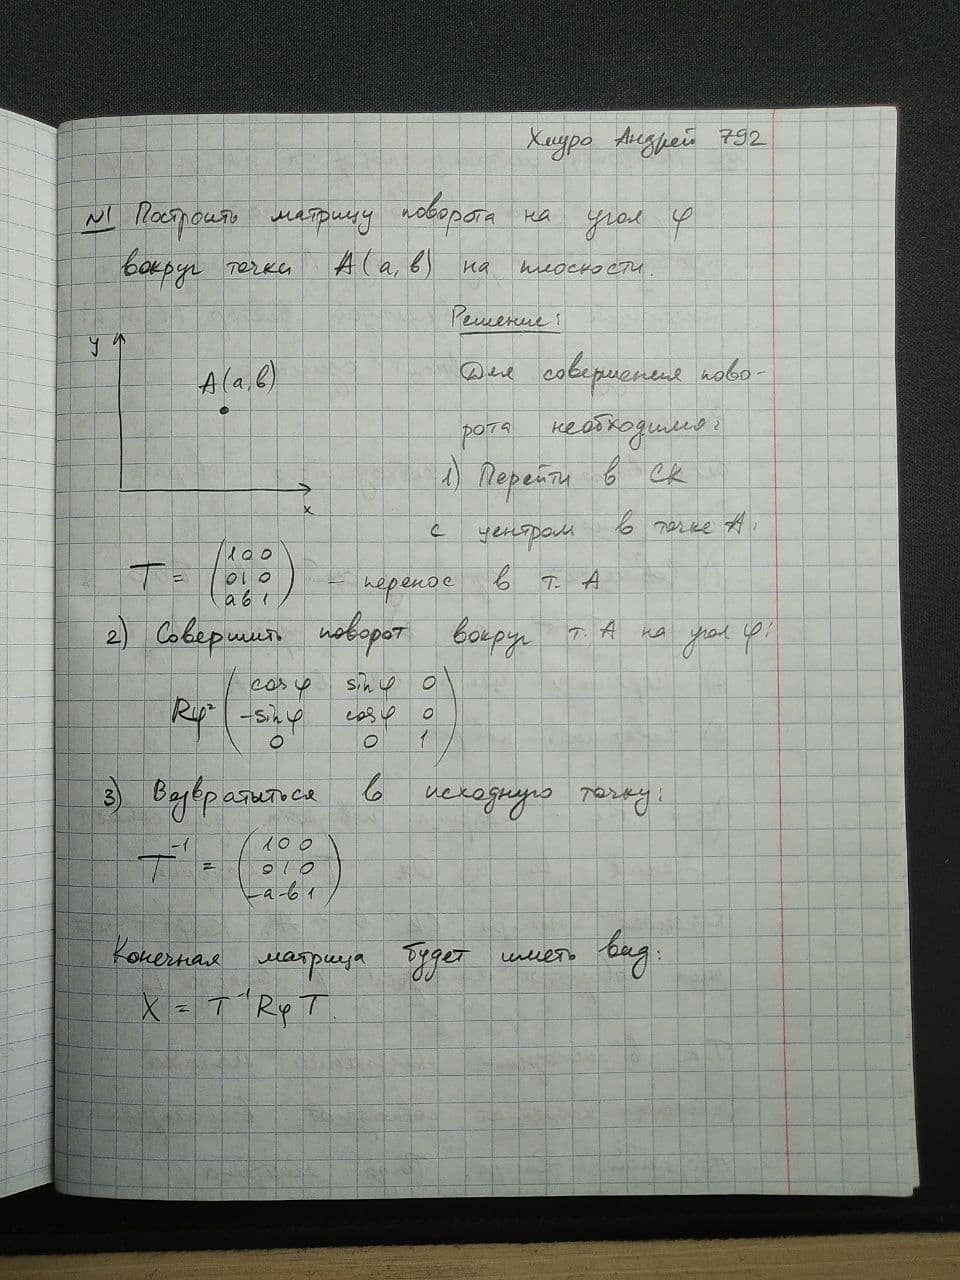 Хмуро Андрей 792
№1 Построить матрицу поворота на угол φ
вокруг точки A(a,b) на плоскости.
Решение:
y
A(a,b)
x
Для совершения пово-
рота необходимо:
1) Перейти в СК
с центром в точке A:
T = (1 0 0
0 1 0
a b 1) – перенос в т. A
2) Совершить поворот вокруг т. A на угол φ:
Rφ= (cosφ sinφ 0
-sinφ cosφ 0
0 0 1)
3) Возвратыться в исходную точку:
T⁻¹ = (1 0 0
0 1 0
-a -b 1)
Конечная матрица будет иметь вид:
X = T⁻¹ Rφ T.